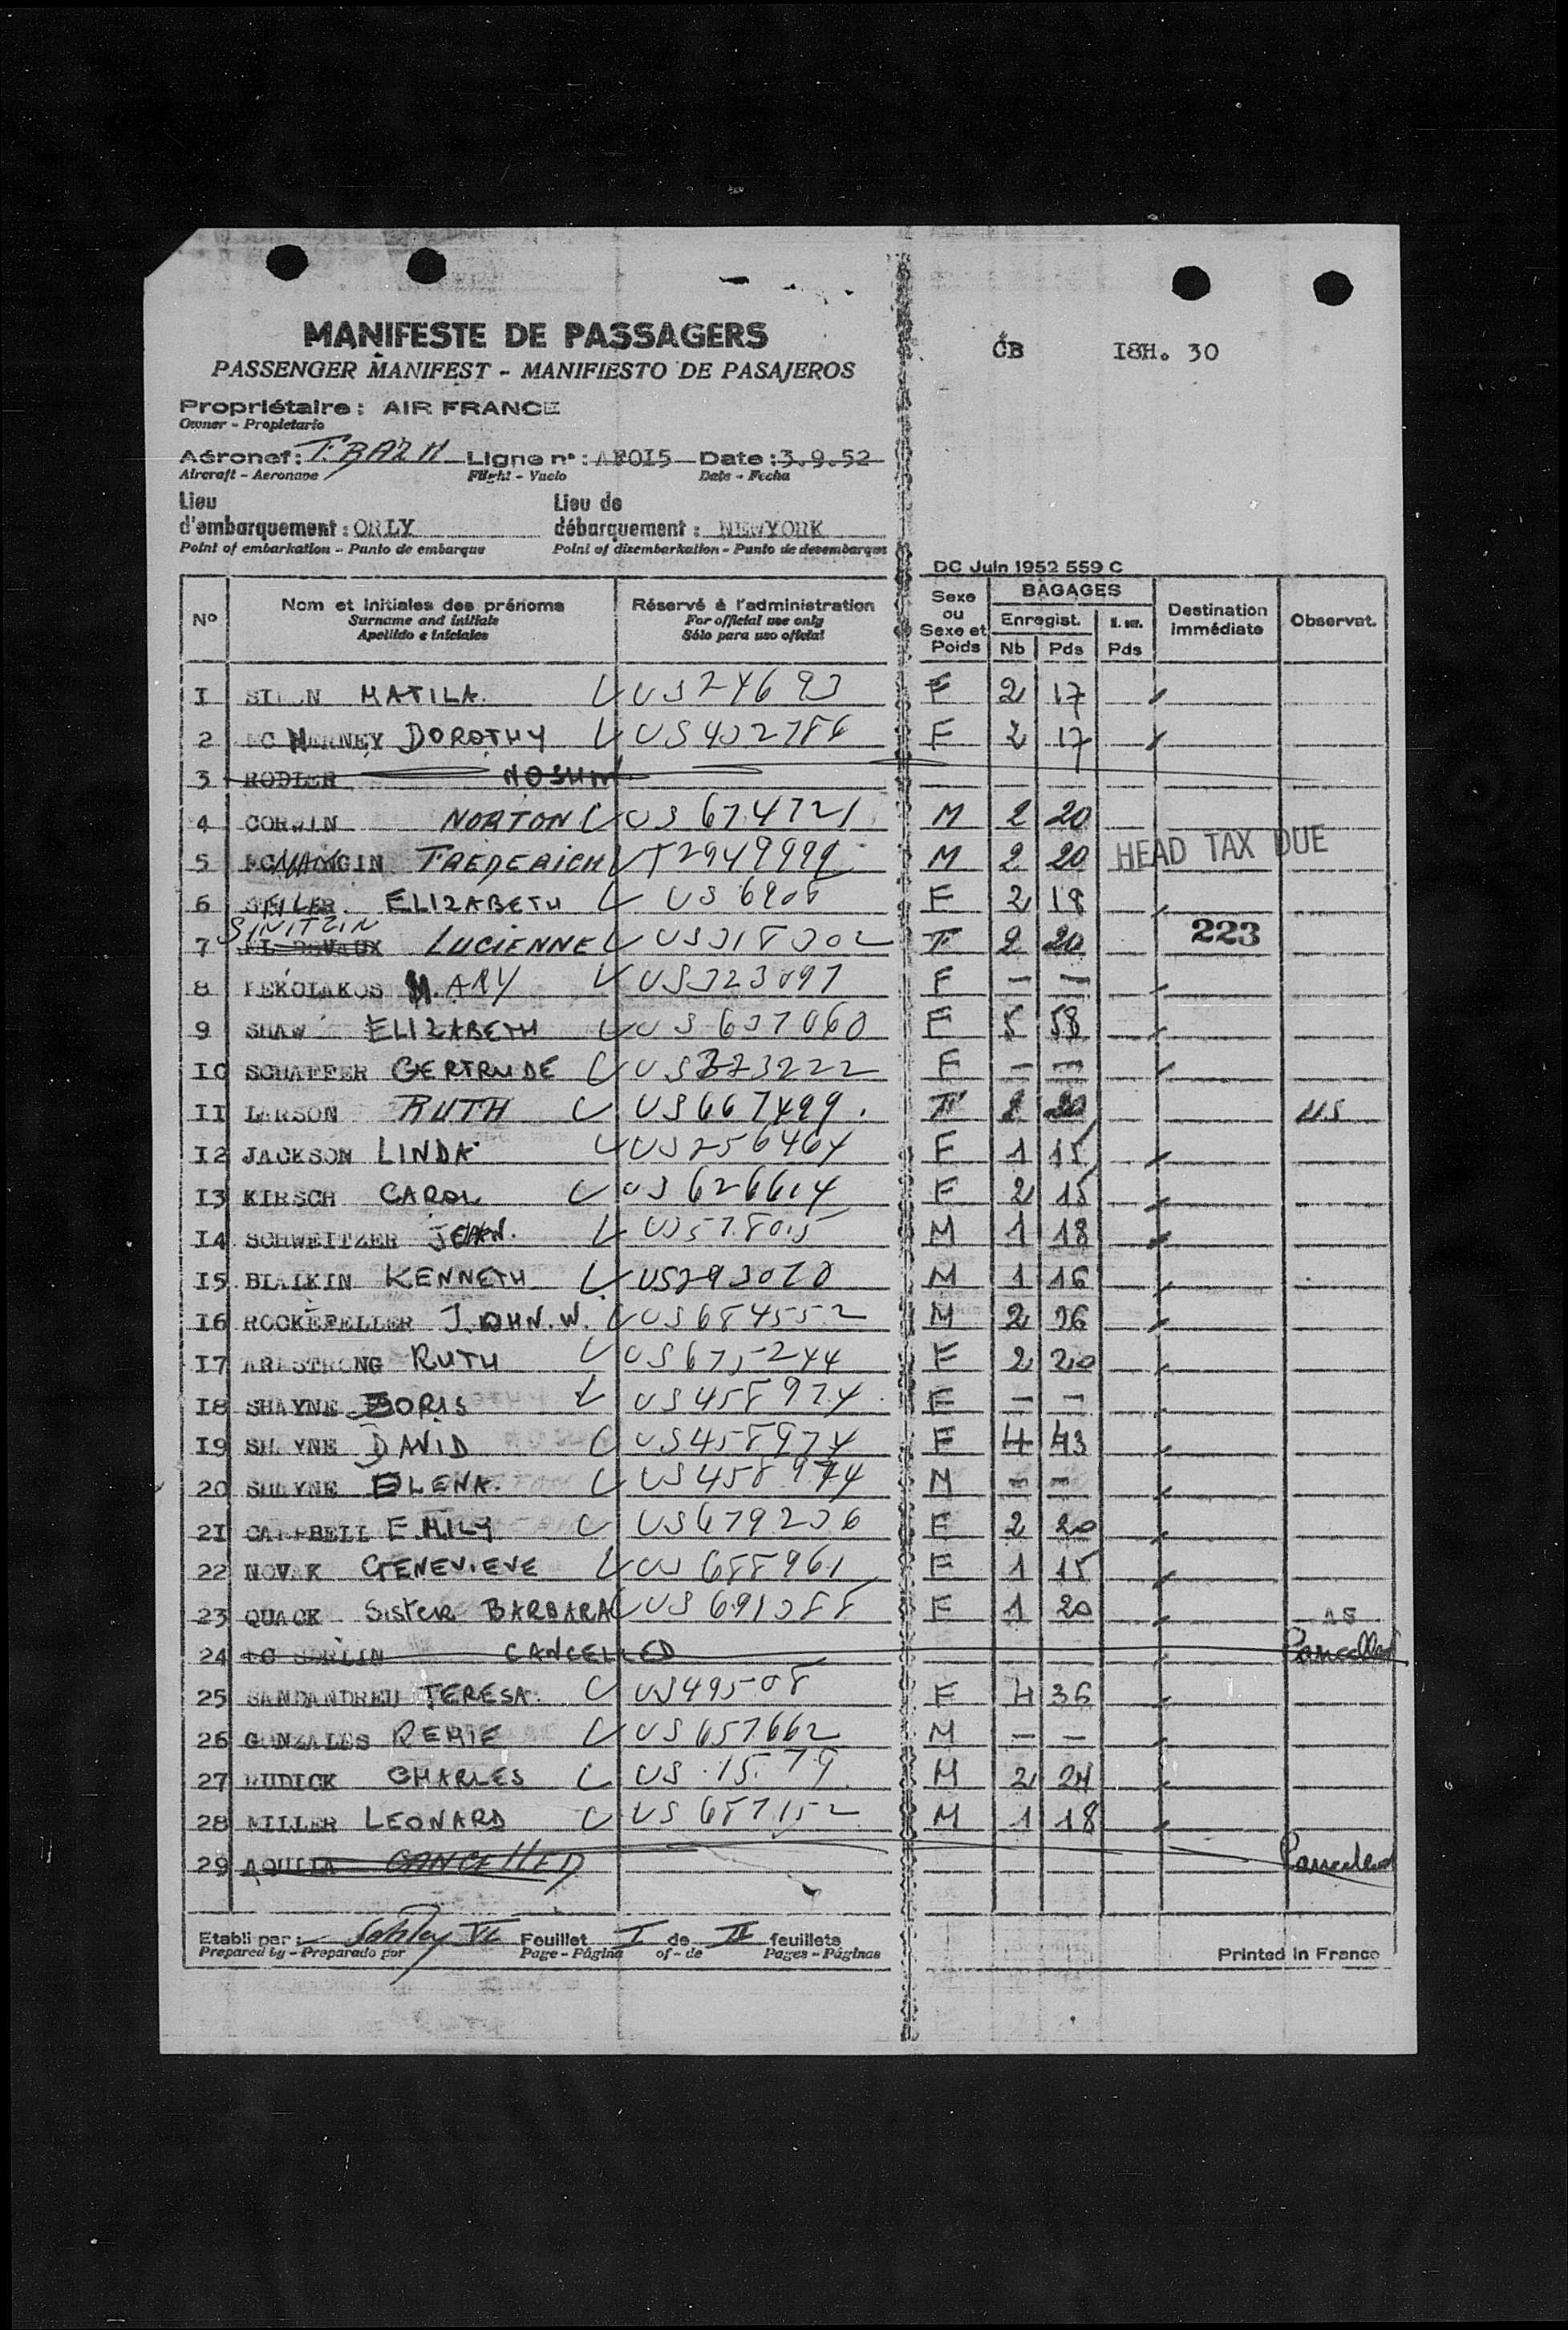 MANIFESTE DE PASSAGERS
PASSENGER MANIFEST - MANIFIESTO DE PASAJEROS
CB 18H. 30
Propriétaire : AIR FRANCE
Owner - Propietario
Aéronef : Ligne n° : AF015 Date : 3.9.52
Aircraft - Aeronave Flight - Vuelo Date - Fecha
Lieu d'embarquement : ORLY Lieu de débarquement : NEWYORK
Point of embarkation - Punto de embarque Point of disembarkation - Punto de desembarque
DC Juin 1952 559 C
N° Nom et initiales des prénoms Réservé à l'administration Sexe ou Sexe et Poids BAGAGES Destination immédiate Observat.
Surname and initials For official use only Enregist.
Apellido e iniciales Sólo para uso oficial Nb Pds Pds
1 MATILA. US24693 F 2 17
2 DOROTHY US402786 F 2 17
3 RODIER NOSHW
4 CORWIN NORTON US 674721 M 2 20
5 T2949999 M 2 20 HEAD TAX DUE
6 ELIZABETH US 6908 F 2 18
7 SINITZIN LUCIENNE US318302 F 2 20 223
8 MARY US323097 F — —
9 SHAW ELIZABETH US 637060 F 5 58
10 SCHAFFER GERTRUDE US373222 F — —
11 LARSON RUTH US667499. F 2 20 US
12 JACKSON LINDA US256464 F 1 15
13 KIRSCH CAROL US 626614 F 2 15
14 SCHWEITZER US578015 M 1 18
15 BLAIKIN KENNETH US293070 M 1 16
16 ROCKEFELLER JOHN.W. US684552 M 2 26
17 ARMSTRONG RUTH US675244 F 2 20
18 SHAYNE US458974 F — —
19 SHAYNE DAVID US458974 F 4 43
20 SHAYNE ELENA. US458974 M — —
21 CAMPBELL EMILY US679236 F 2 20
22 NOVAK GENEVIEVE US 688961 F 1 15
23 QUACK Sister BARBARA US 691388 F 1 20
24 CANCELLED Cancelled
25 SANDANDREU TERESA. US49508 F 4 36
26 GONZALES REMIE US657662 M — —
27 RUDICK CHARLES US 1579 M 2 24
28 MILLER LEONARD US 687152 M 1 18
29 AQUILIA CANCELLED Cancelled
Etabli par : Feuillet I de II feuillets
Prepared by - Preparado por Page - Página of - de Pages - Páginas
Printed in France